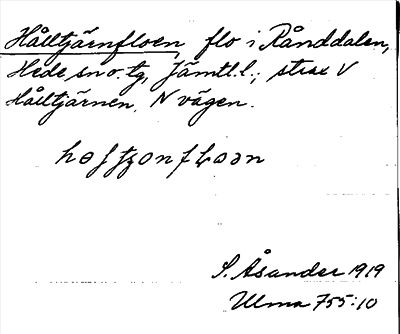 Hålltjärnfloen, flo i Rånddalen,
Hede sn o. tg, Jämtl.l.; strax V
Hålltjärnen, N vägen.
S. Åsander 1919
Ulma 755:10